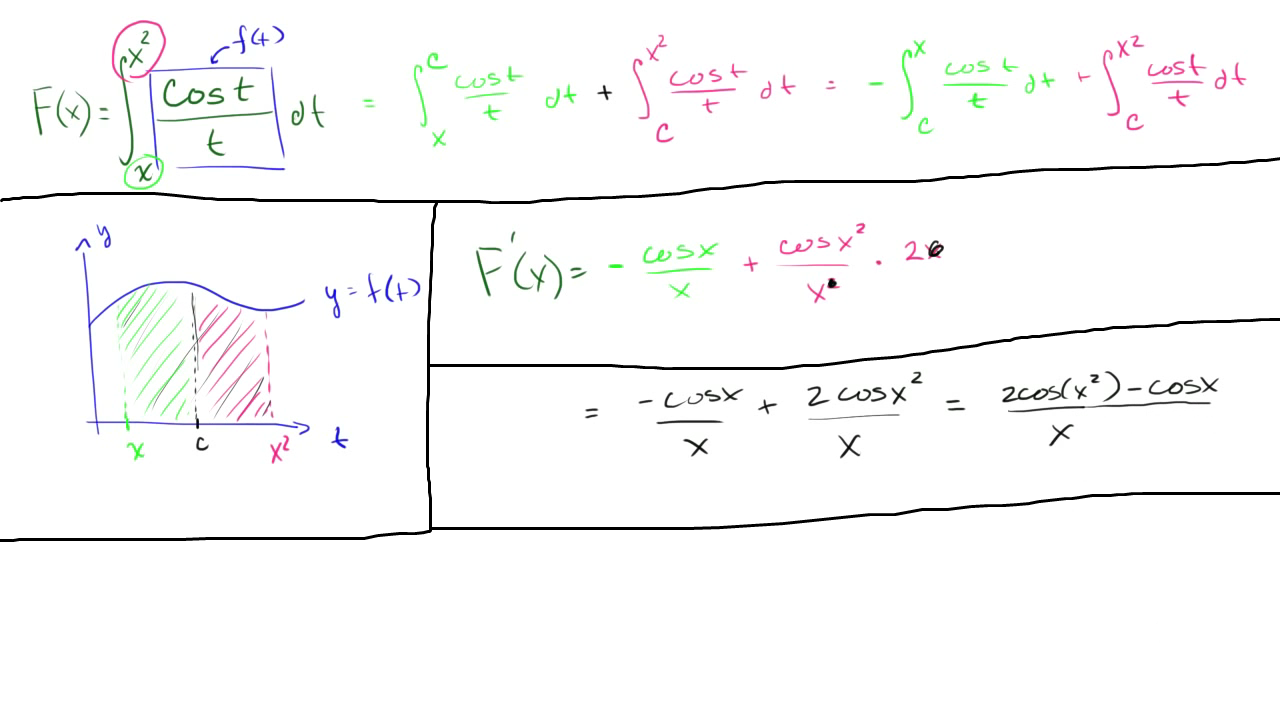 F(x) = ∫ₓ^x² cos t / t dt = ∫ₓ^c cos t / t dt + ∫_c^x² cos t / t dt = - ∫_c^x cos t / t dt + ∫_c^x² cos t / t dt
f(t)
y
y = f(t)
x c x² t
F'(x) = - cos x / x + cos x² / x · 2
= -cos x / x + 2 cos x² / x = 2cos(x²) - cos x / x